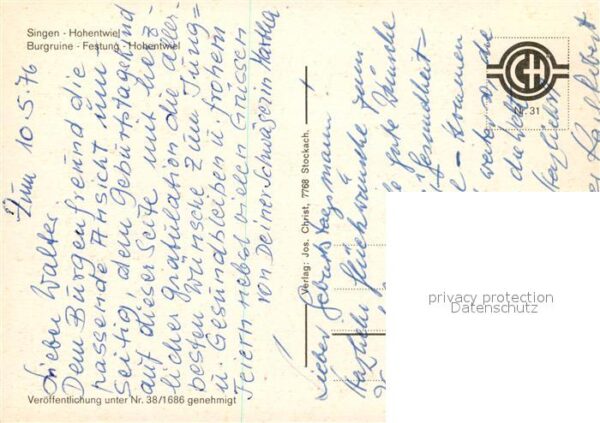 Singen - Hohentwiel
Burgruine - Festung - Hohentwiel
Zum 10.5.76
Lieber Walter,
Dem Burgenfreund die
passende Ansicht um-
seitig, dem Geburtstagskind
auf dieser Seite mit herz-
licher Gratulation die aller-
besten Wünsche zum Jung-
u. Gesundbleiben u. frohem
Feiern nebst vielen Grüssen
von Deiner Schwägerin Martha
Verlag: Jos. Christ, 7768 Stockach.
Lieber Geburtstagsmann!
Herzliche Glückwünsche zum
gute Wünsche
Gesundheit-
kommen
weiter so die
die weite
Herzlichst
Nr. 31
privacy protection
Datenschutz
Veröffentlichung unter Nr. 38/1686 genehmigt